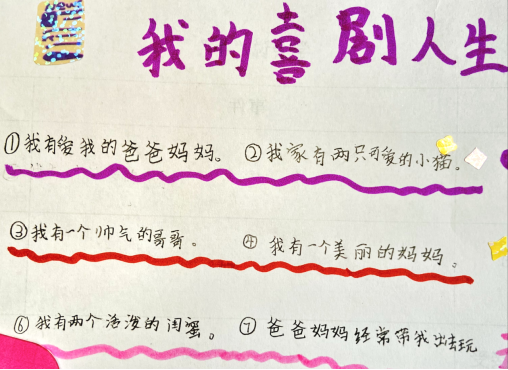 我的喜剧人生
①我有爱我的爸爸妈妈。 ②我家有两只可爱的小猫。
③我有一个帅气的哥哥。 ④我有一个美丽的妈妈。
⑥我有两个活泼的闺蜜。 ⑦爸爸妈妈经常带我出去玩